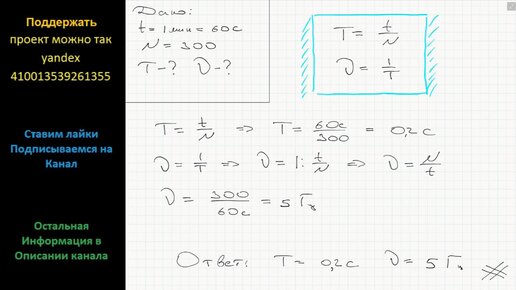 Поддержать
проект можно так
yandex
410013539261355
Ставим лайки
Подписываемся на
Канал
Остальная
Информация в
Описании канала
Дано:
t = 1 мин = 60с
N = 300
T - ? ν - ?
T = t/N
ν = 1/T
T = t/N => T = 60с/300 = 0,2 с
ν = 1/T => ν = 1 : t/N => ν = N/t
ν = 300/60с = 5 Гц
Ответ: T = 0,2с ν = 5 Гц